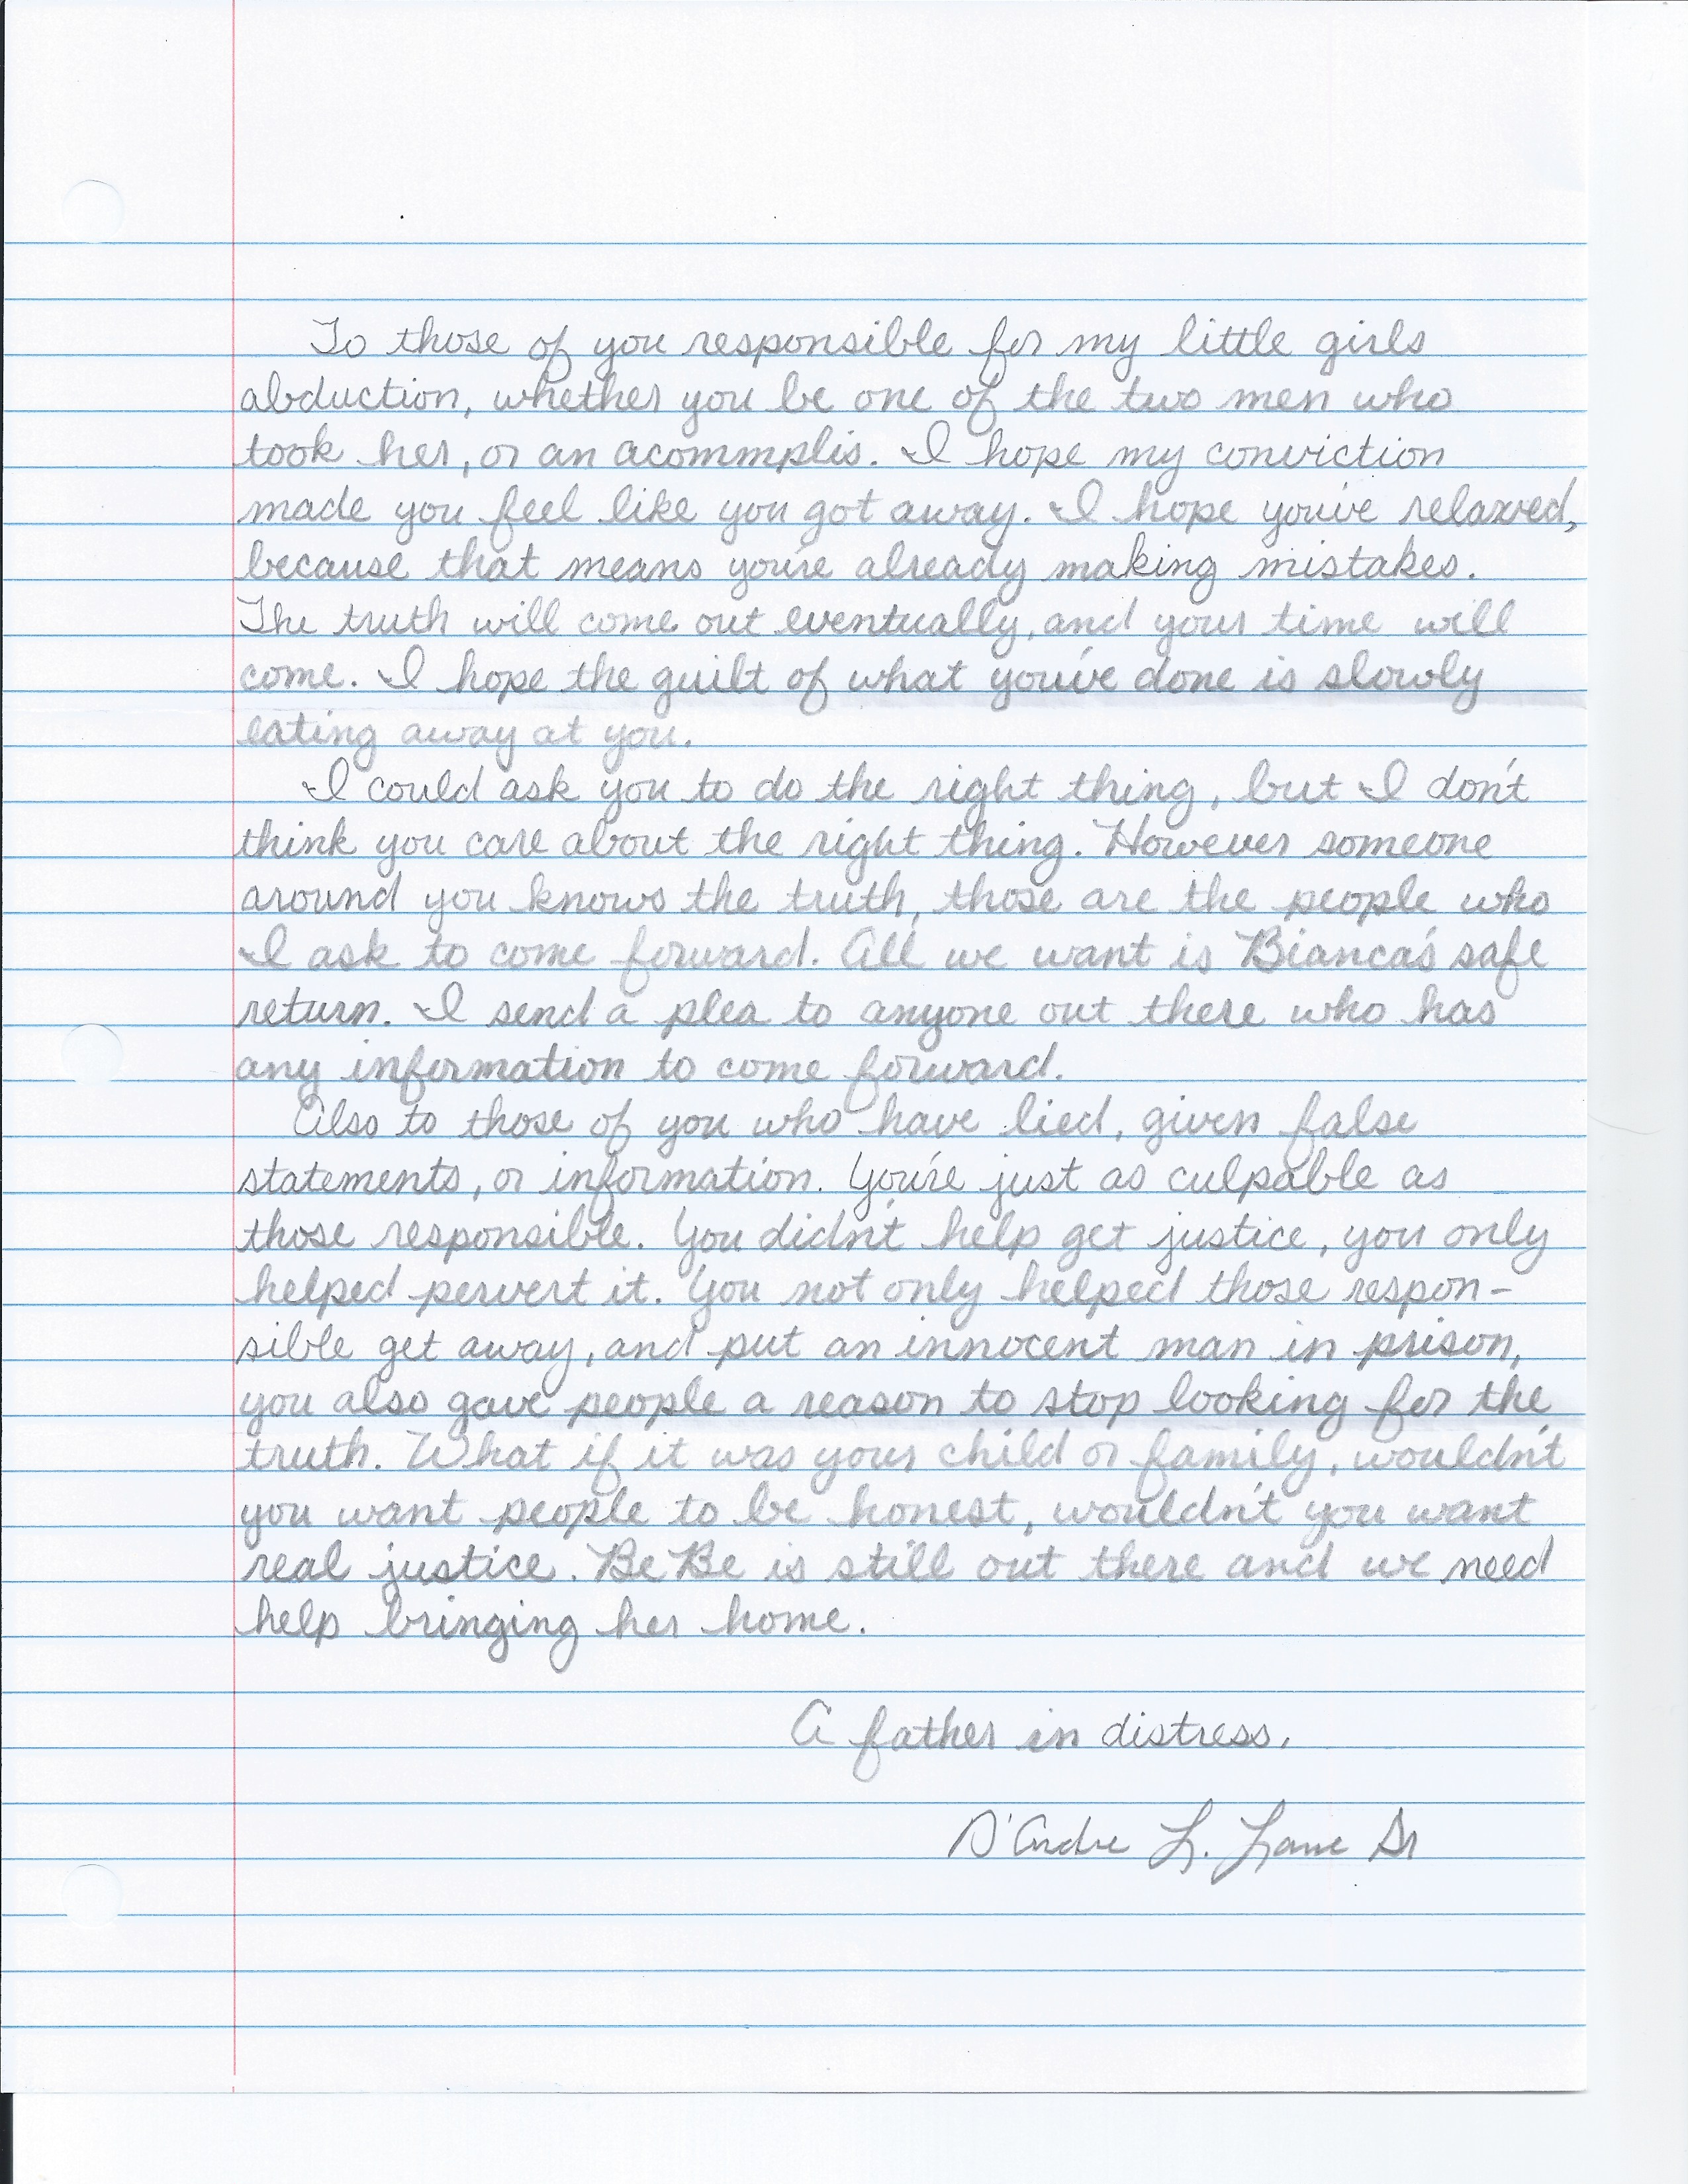 To those of you responsible for my little girls
abduction, whether you be one of the two men who
took her, or an acommplis. I hope my conviction
made you feel like you got away. I hope you've relaxed,
because that means you're already making mistakes.
The truth will come out eventually, and your time will
come. I hope the guilt of what you've done is slowly
eating away at you.
I could ask you to do the right thing, but I don't
think you care about the right thing. However someone
around you knows the truth, those are the people who
I ask to come forward. All we want is Bianca's safe
return. I send a plea to anyone out there who has
any information to come forward.
Also to those of you who have lied, given false
statements, or information. You're just as culpable as
those responsible. You didn't help get justice, you only
helped pervert it. You not only helped those respon-
sible get away, and put an innocent man in prison,
you also gave people a reason to stop looking for the
truth. What if it was your child or family, wouldn't
you want people to be honest, wouldn't you want
real justice. BeBe is still out there and we need
help bringing her home.
A father in distress,
D'Andre L. Lane Sr